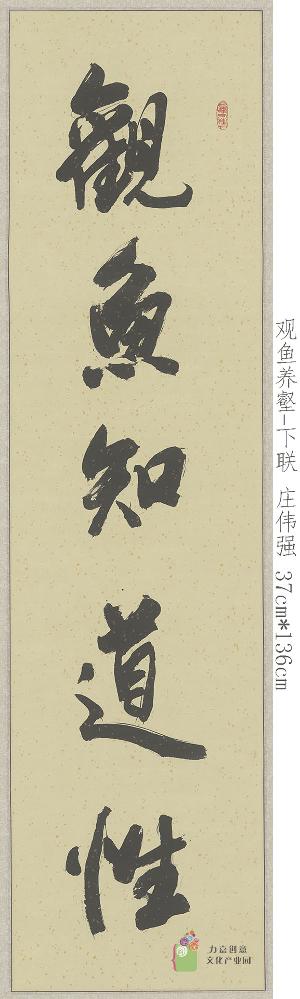 觀魚知道性
观鱼养壑-下联 庄伟强 37cm*136cm
力嘉创意
文化产业园